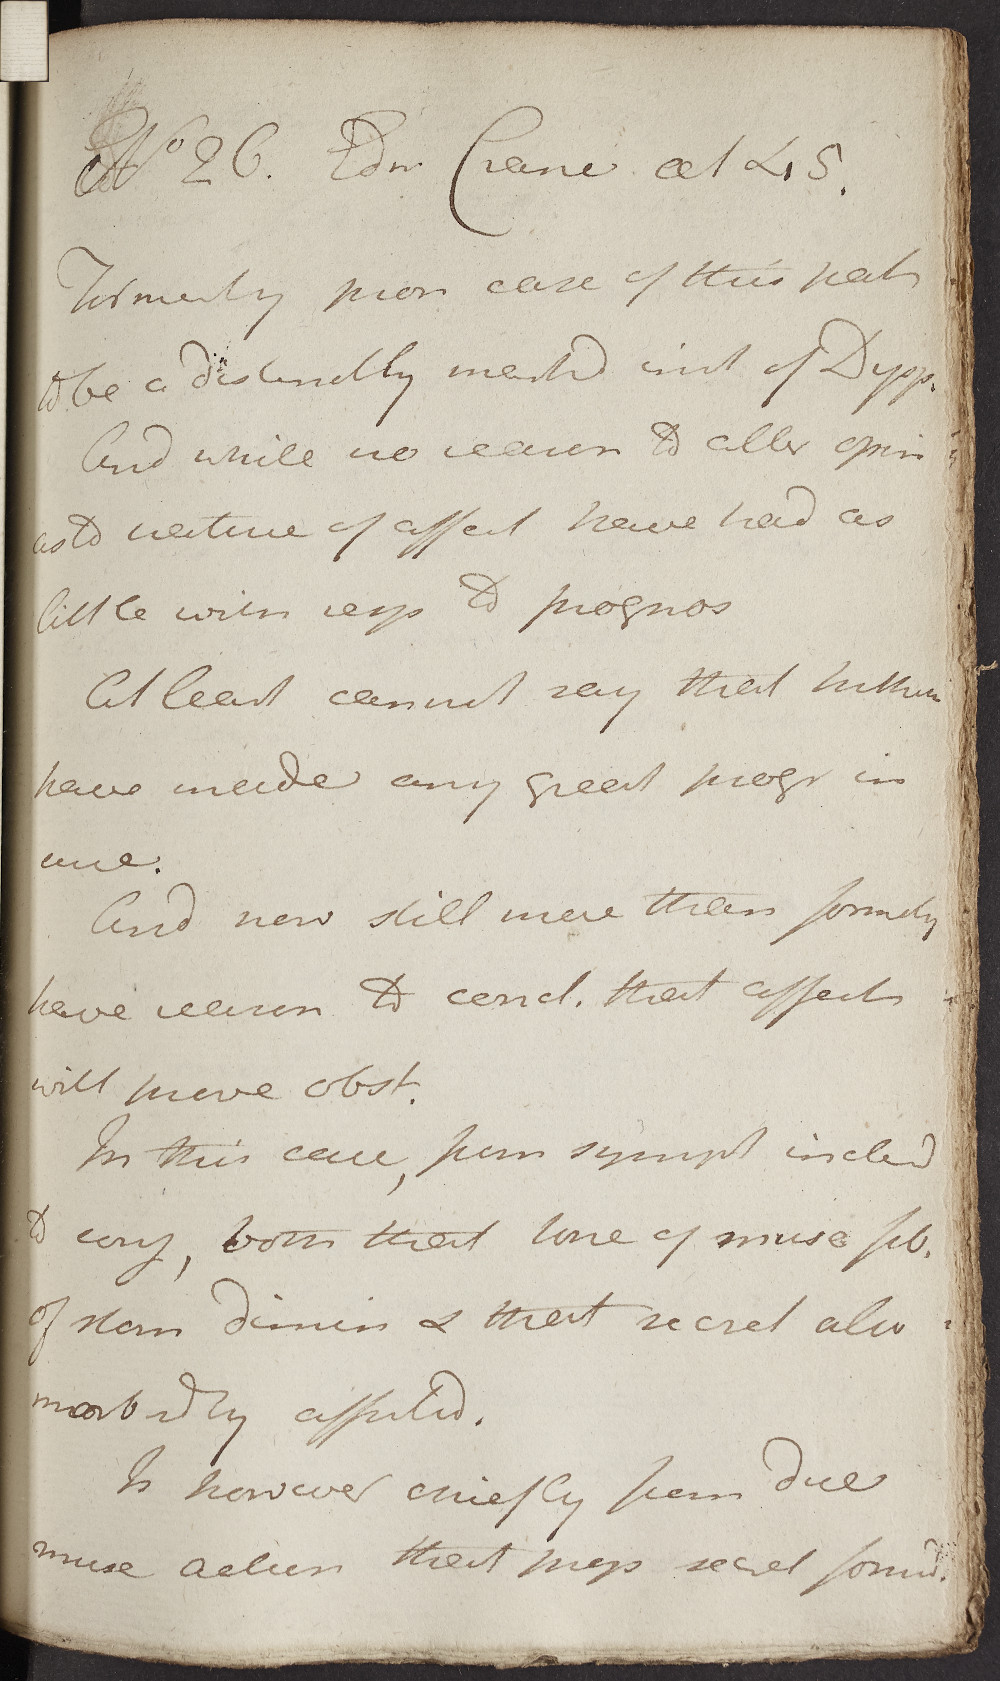 No 26. Edw Crane aet 45.
Formerly pron case of this pat
to be a distinctly markd inst of Dysp.
And while no reason to alter opin
as to nature of affect have had as
little with resp to prognos
At least cannot say that hither
have made any great progr in
cure.
And now still more than formely
have reason to concl. that affect
will prove obst.
In this case, from sympt inclind
to conj, both that tone of musc fib.
of stom dimin & that secret also
morbidly affectd.
Is however chiefly from due
musc action that prop secret formd.